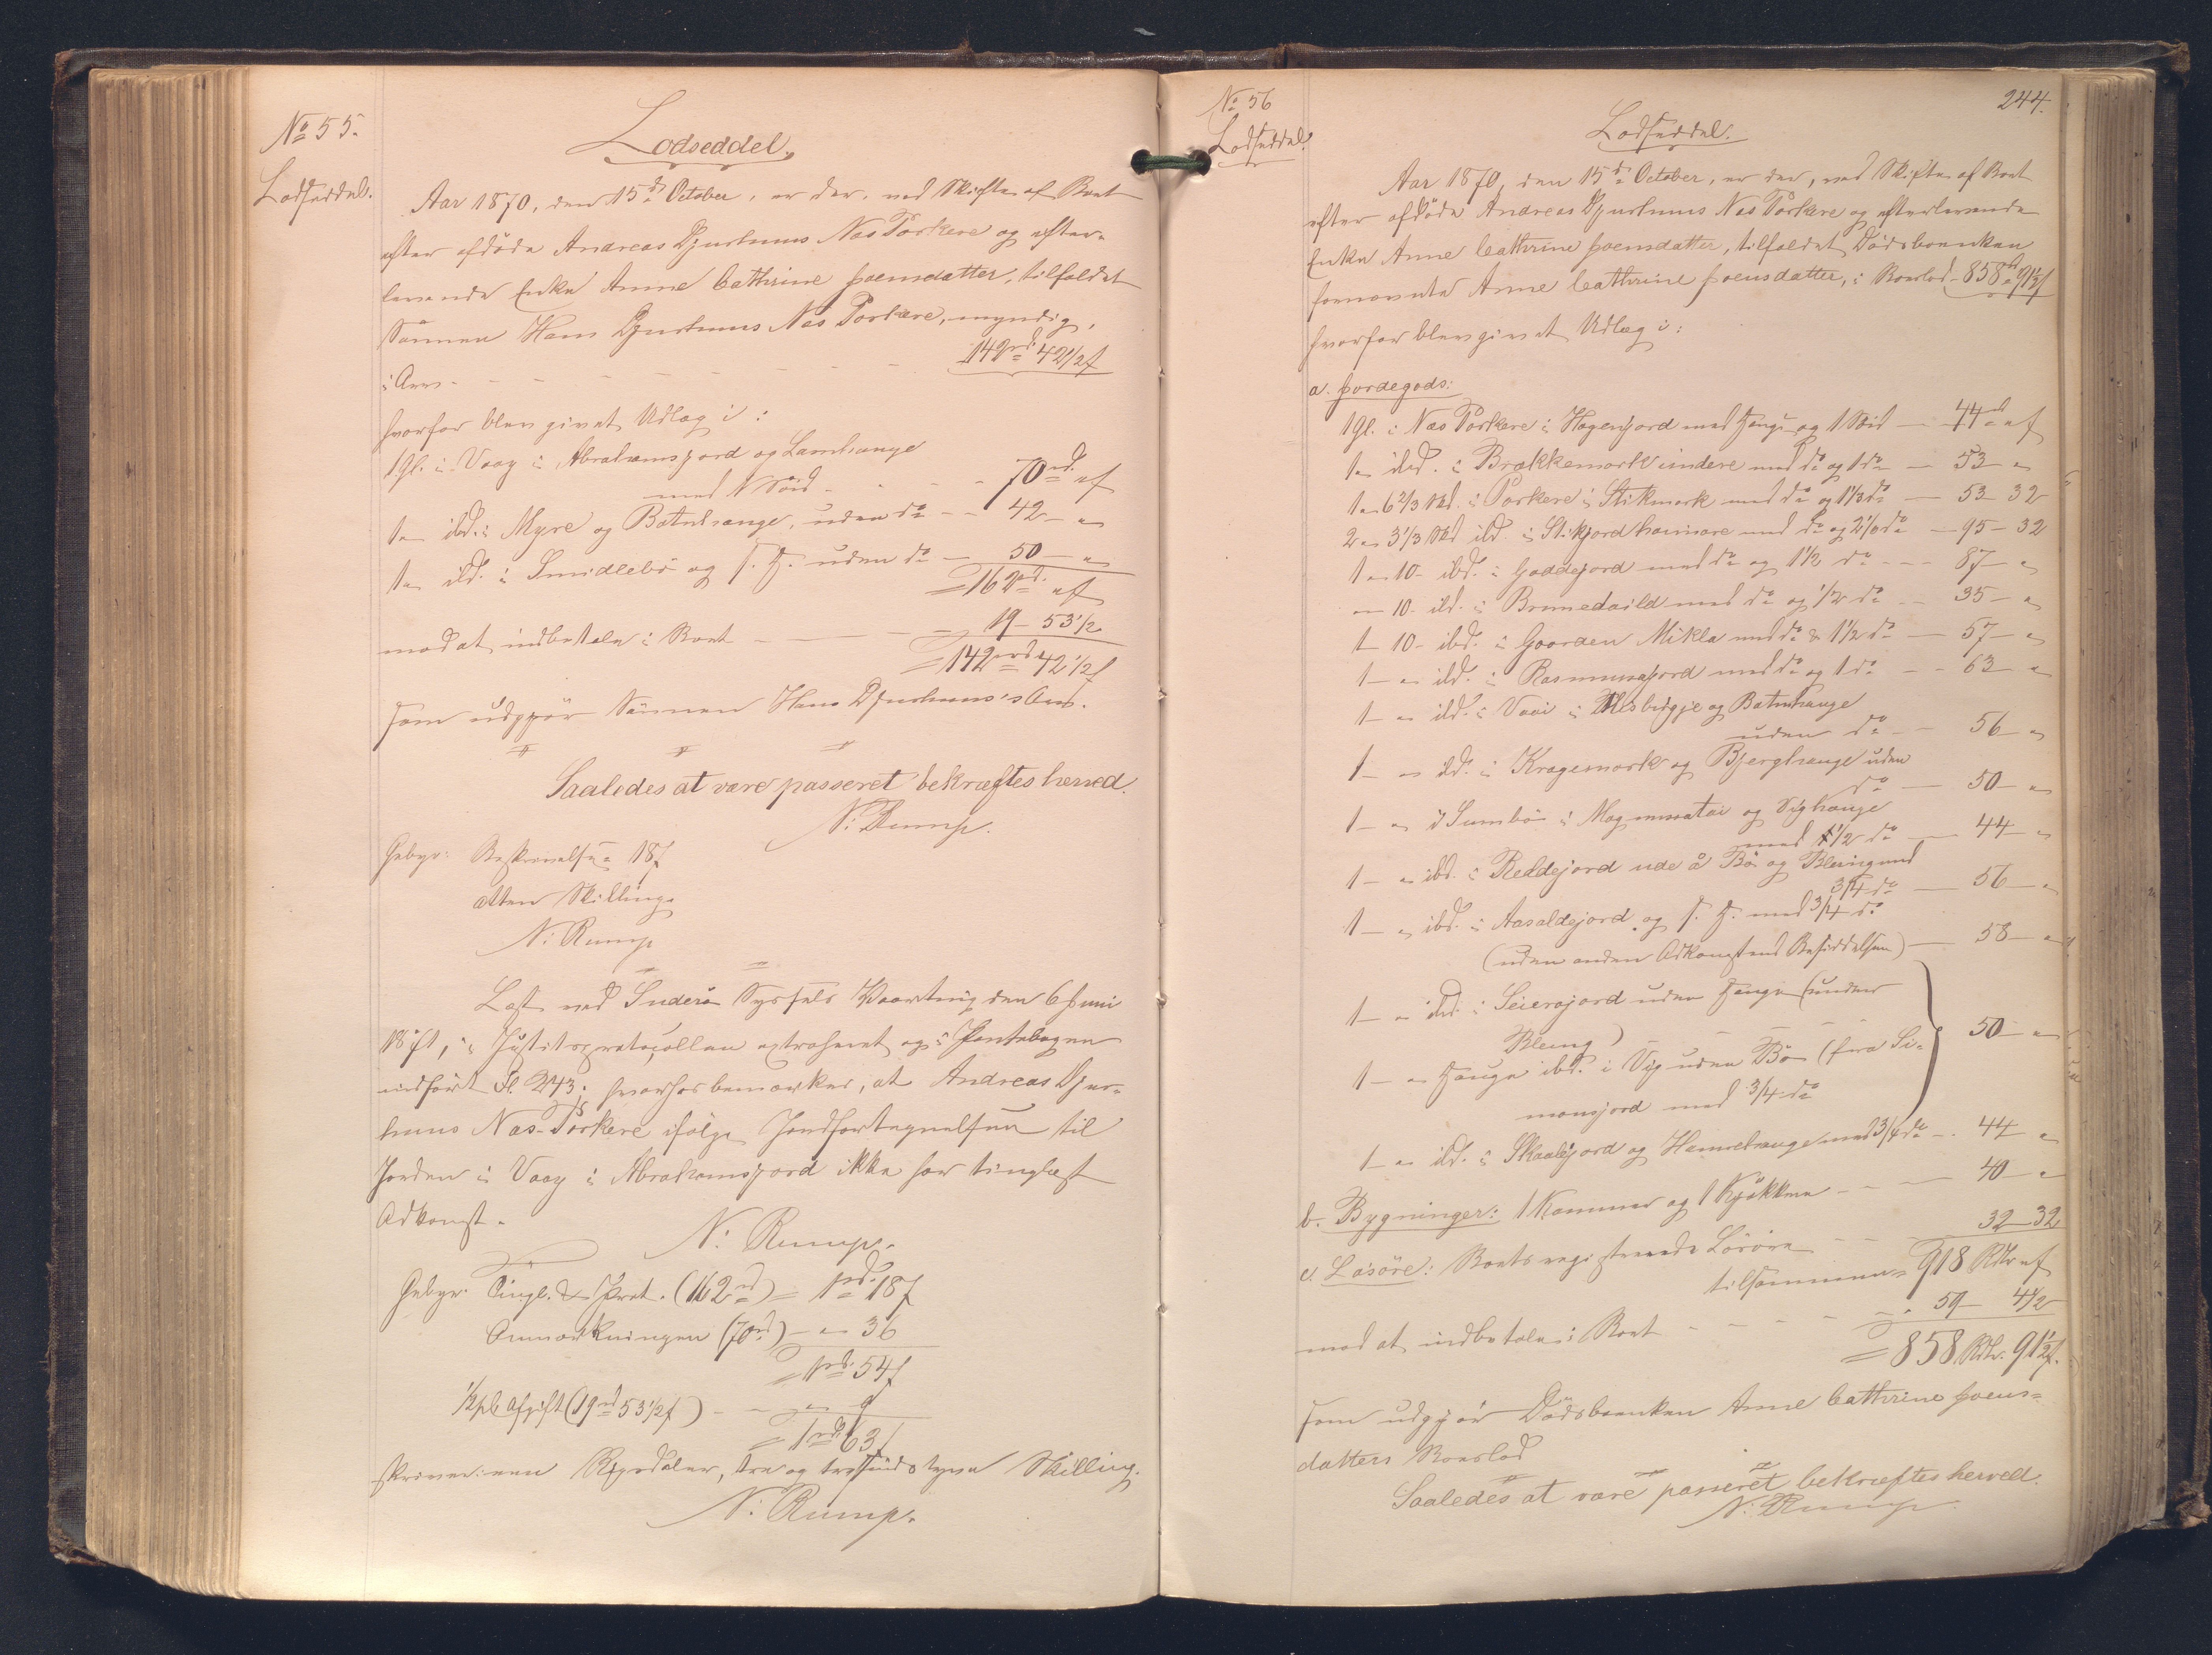 No 55.
Lodseddel.
Lodseddel.
Aar 1870, den 15de October, er der, ved Skifte af Boet
efter afdöde Andreas Djurhuus Næs Porkere og efter-
levende Enke Anne Cathrine Joensdatter, tilfaldet
Sönnen Hans Djurhuus Næs Porkere, myndig,
i Arv - - - 142rd 42 1/2 ß
hvorfor blev givet Udlæg i:
1 Gl. i Vaag i Abrahamsjord og Lamhauge
med 1 Söid - - 70rd " ß
1 " ibd. i Myre og Botnhauge, uden do - - 42 - "
1 " ibd. i Smidlebö og f. H. uden do - 50 - "
= 162rd " ß
mod at indbetale i Boet - - 19 - 53 1/2
= 142rd 42 1/2 ß
som udgjör Sönnen Hans Djurhuus's Arv.
Saaledes at være passeret bekræftes herved.
N: Rump.
Gebyr: Beskrivelsen 18 ß
atten Skilling.
N: Rump
Læst ved Suderö Syssels Vaarting den 6 Juni
1871, i Justitsprotocollen extraheret og i Pantebogen
indfört Fl. 243; hvorhos bemærkes, at Andreas Djur-
huus Næs-Porkere ifölge Jordfortegnelsen til
Jorden i Vaag i Abrahamsjord ikke har tinglæst
Adkomst.
N: Rump.
Gebyr. Tingl. & Prot. (162rd) = 1rd 18 ß
Anmærkningen (70rd) - " 36
= 1rd 54 ß
1/2 pCt Afgift (19rd 53 1/2 ß) - - " 9
= 1rd 63 ß
skriver: een Rigsdaler, tre og tresindstyve Skilling.
N: Rump.
244.
No 56
Lodseddel.
Lodseddel.
Aar 1870, den 15de October, er der, ved Skifte af Boet
efter afdöde Andreas Djurhuus Næs Porkere og efterlevende
Enke Anne Cathrine Joensdatter, tilfaldet Dödsboenken
fornævnte Anne Cathrine Joensdatter, i Boeslod - 858rd 91 1/2 ß
hvorfor blev givet Udlæg i:
a. Jordegods:
1 Gl. i Næs Porkere i Hagenjord med Hauge og 1 Söid - 44rd " ß
1 " ibd. i Brækkemork indere med do og 1 do - 53 - "
1 " 6 2/3 Skd. i Porkere i Stikmork med do og 1 1/3 do - 53 - 32
2 " 3 1/3 Skd ibd. i Stikjord med do og do - 95 - 32
1 " 10 - ibd. i Gaddejord med do og 1 1/2 do - - 87 - "
" 10 - ibd. i med do og 1/2 do - - 35 - "
1 - 10 - ibd. i Goorden Mikla med do & 1 1/2 do - 57 - "
1 - " ibd. i Rasmussajord med do og 1 do - - 63 - "
1 - " ibd. i og Botnhauge
uden do - - 56 - "
1 - " ibd. i Kragemork og Bjerghauge uden
do - 50 - "
1 - " i Sumbö i og Vighauge
med 1/2 do - 44 - "
1 - " ibd. i Reldejord ude å Bö og Bleing med
3/4 do - 56 - "
1 - " ibd. i Aasaldejord og f. H. med 3/4 do
(uden anden Adkomst end Besiddelsen) - 58 - "
1 - " ibd. i Seierajord uden Hauge (under
Bleing) - - - -
1 - " Hauge ibd. i Vig uden Bö (fra Si- 50 - "
monsjord med 3/4 do
1 - " ibd. i Skaalejord og Hamrehauge med 3/4 do - 44 "
b. Bygninger: 1 Kammer og 1 Kjökken - - - 40 - "
c. Lösöre: Boets registrerede Lösöre - - 32 - 32
tilsammen = 918 Rdlr " ß
mod at indbetale i Boet - - - - 59 - 4 1/2
= 858 Rdlr. 91 1/2 ß.
som udgjör Dödsboenken Anne Cathrine Joens-
datters Boeslod
Saaledes at være passeret bekræftes herved.
N: Rump